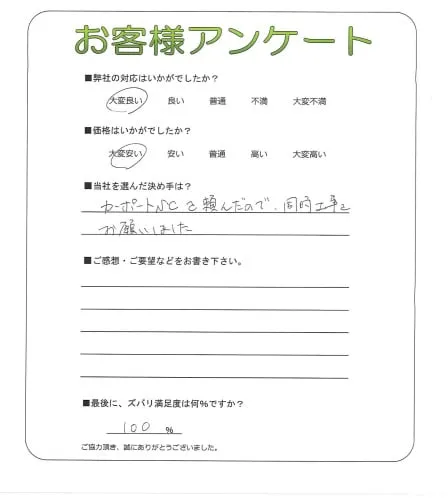 お客様アンケート
■弊社の対応はいかがでしたか？
大変良い 良い 普通 不満 大変不満
■価格はいかがでしたか？
大変安い 安い 普通 高い 大変高い
■当社を選んだ決め手は？
カーポートSCを頼んだので、同時工事を
お願いしました
■ご感想・ご要望などをお書き下さい。
■最後に、ズバリ満足度は何%ですか？
100 %
ご協力頂き、誠にありがとうございました。